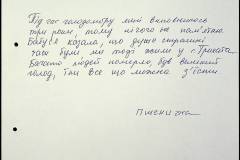 Під час голодомору мені виповнилось
три роки, тому нічого не пам'ятаю.
Бабуся казала, що дуже страшні
часи були ми тоді жили у Трикати
Багато людей померло, був великий
голод, їли все що можна з'їсти
Пшенична